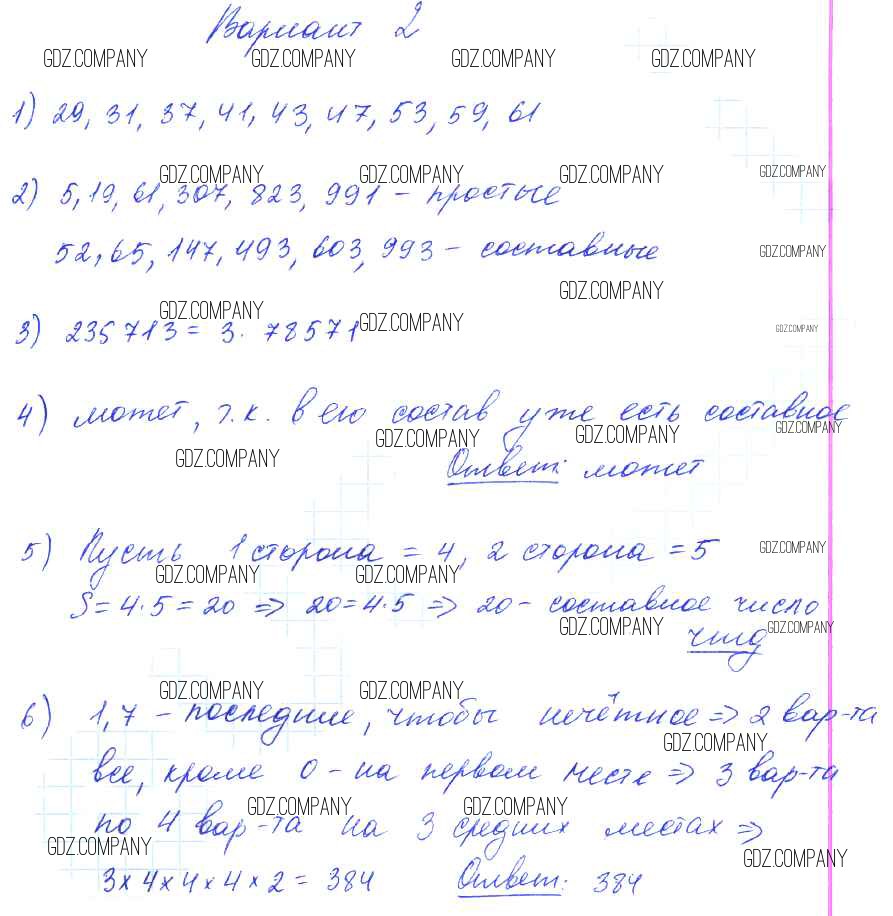 Вариант 2
GDZ.COMPANY GDZ.COMPANY GDZ.COMPANY GDZ.COMPANY
1) 29, 31, 37, 41, 43, 47, 53, 59, 61
GDZ.COMPANY GDZ.COMPANY GDZ.COMPANY GDZ.COMPANY
2) 5, 19, 61, 307, 823, 991 – простые
52, 65, 147, 493, 603, 993 – составные
GDZ.COMPANY
GDZ.COMPANY
GDZ.COMPANY GDZ.COMPANY GDZ.COMPANY
3) 235713 = 3 · 78571
4) может, т.к. в его состав уже есть составное
GDZ.COMPANY GDZ.COMPANY GDZ.COMPANY GDZ.COMPANY
Ответ: может
5) Пусть 1 сторона = 4, 2 сторона = 5
GDZ.COMPANY
GDZ.COMPANY GDZ.COMPANY
S = 4·5 = 20 => 20 = 4·5 => 20 – составное число
GDZ.COMPANY GDZ.COMPANY
чтд
GDZ.COMPANY GDZ.COMPANY
6) 1, 7 – последние, чтобы нечётное => 2 вар-та
GDZ.COMPANY
все, кроме 0 – на первом месте => 3 вар-та
GDZ.COMPANY GDZ.COMPANY
по 4 вар-та на 3 средних местах =>
GDZ.COMPANY GDZ.COMPANY
3 × 4 × 4 × 4 × 2 = 384 Ответ: 384